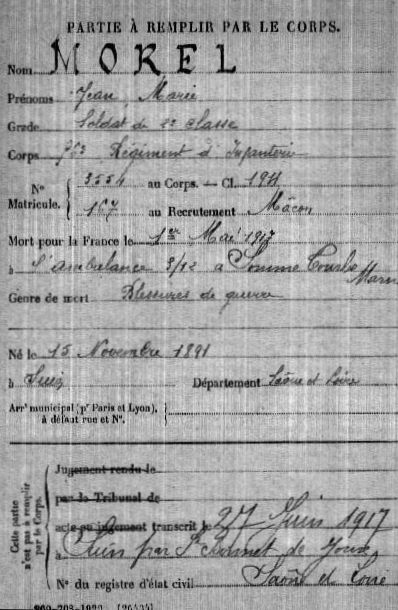 PARTIE À REMPLIR PAR LE CORPS.
Nom MOREL
Prénoms Jean Marie
Grade Soldat de 2e classe
Corps Régiment d'Infanterie
Nº Matricule. 3554 au Corps. — Cl. 1911
167 au Recrutement Mâcon
Mort pour la France le 1er Mai 1917
à l'ambulance 3/12 à Somme Tourbe Marne
Genre de mort Blessures de guerre
Né le 15 Novembre 1891
à Suin Département Saône et Loire
Arrt municipal (pr Paris et Lyon),
à défaut rue et Nº.
Cette partie n'est pas à remplir par le Corps.
Jugement rendu le
par le Tribunal de
acte ou jugement transcrit le 27 Juin 1917
à Suin par St Bonnet de Joux
Nº du registre d'état civil Saône et Loire